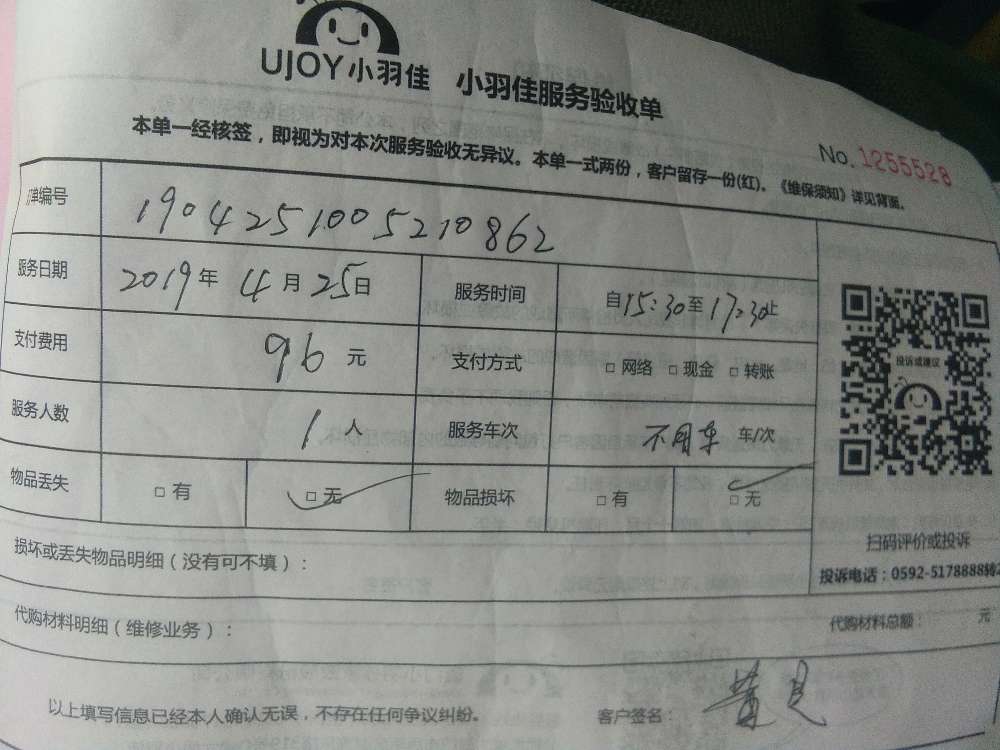 UJOY小羽佳 小羽佳服务验收单
本单一经核签，即视为对本次服务验收无异议。本单一式两份，客户留存一份(红)。《维保须知》详见背面。
No. 1255528
单编号 190425100521 0862
服务日期 2019年 4月25日 服务时间 自15:30至17:30止
支付费用 96元 支付方式 □ 网络 □ 现金 □ 转账
服务人数 1人 服务车次 不用车 车/次
物品丢失 □ 有 □ 无 物品损坏 □ 有 □ 无
投诉或建议
扫码评价或投诉
投诉电话：0592-5178888转2
损坏或丢失物品明细（没有可不填）：
代购材料明细（维修业务）： 代购材料总额： 元
以上填写信息已经本人确认无误，不存在任何争议纠纷。 客户签名： 黄